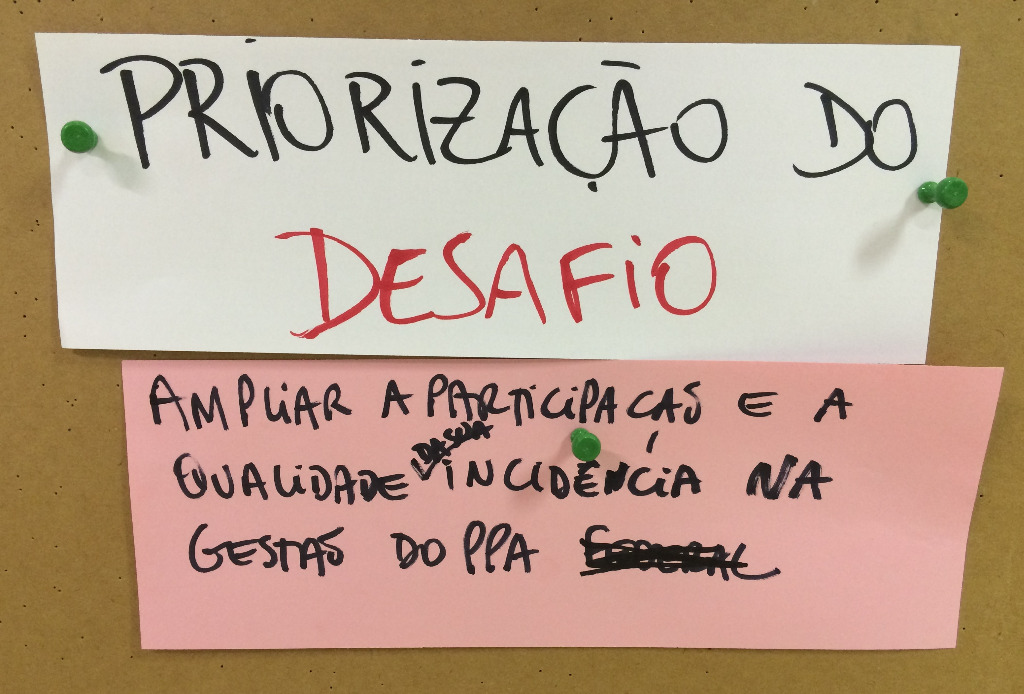 PRIORIZAÇÃO DO
DESAFIO
AMPLIAR A PARTICIPAÇÃO E A
QUALIDADE DA SUA INCIDÊNCIA NA
GESTÃO DO PPA FEDERAL